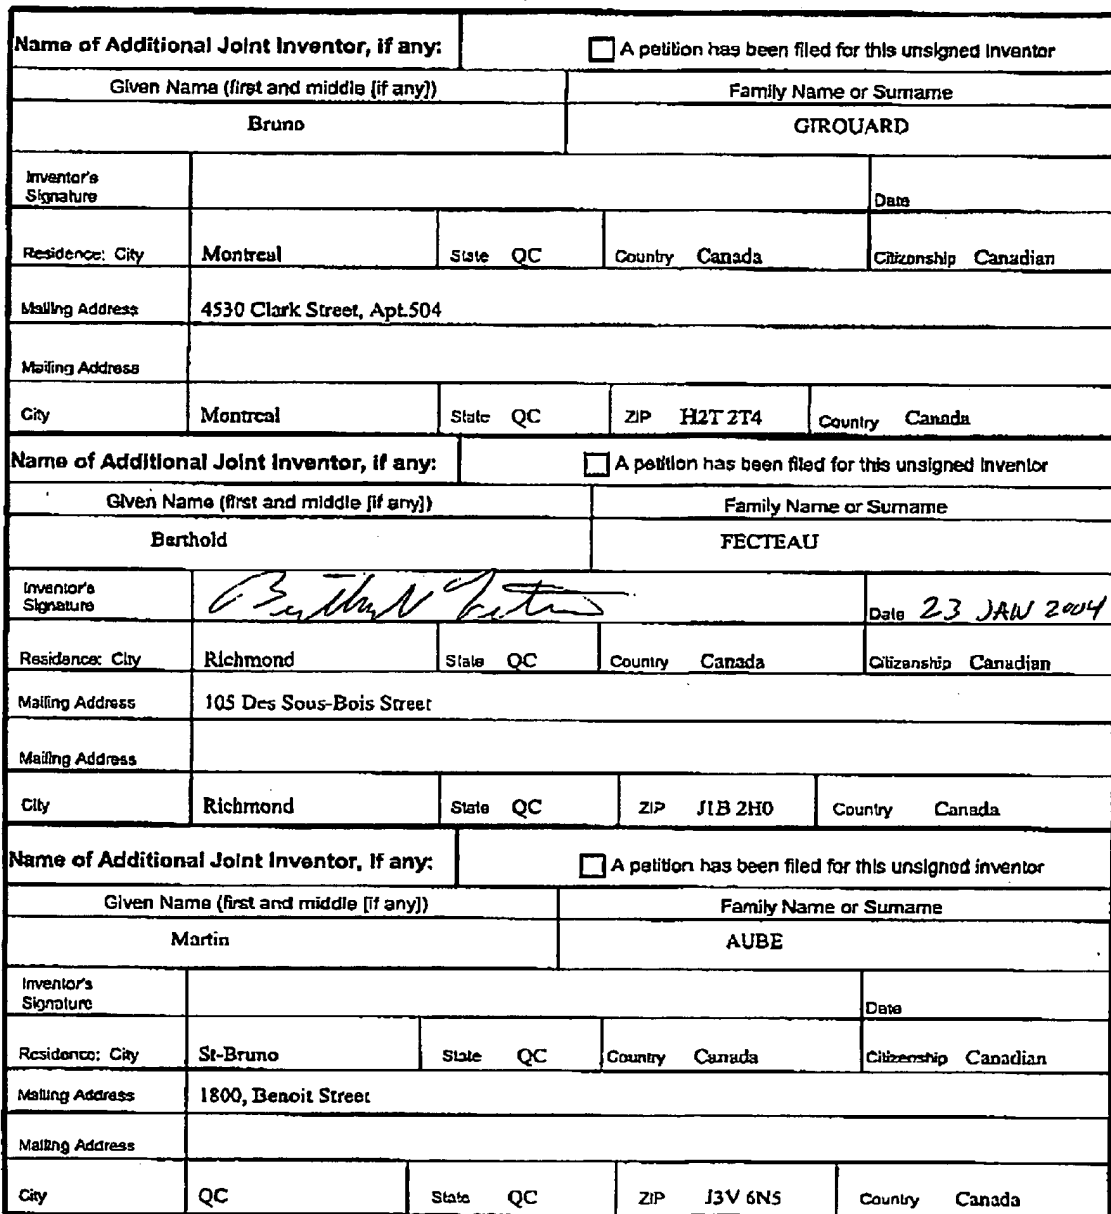 Name of Additional Joint Inventor, if any: A petition has been filed for this unsigned inventor
Given Name (first and middle [if any]) Family Name or Surname
Bruno GIROUARD
Inventor's
Signature Date
Residence: City Montreal State QC Country Canada Citizenship Canadian
Mailing Address 4530 Clark Street, Apt.504
Mailing Address
City Montreal State QC ZIP H2T 2T4 Country Canada
Name of Additional Joint Inventor, if any: A petition has been filed for this unsigned inventor
Given Name (first and middle [if any]) Family Name or Surname
Berthold FECTEAU
Inventor's
Signature Berthold Fecteau Date 23 JAN 2004
Residence: City Richmond State QC Country Canada Citizenship Canadian
Mailing Address 105 Des Sous-Bois Street
Mailing Address
City Richmond State QC ZIP J1B 2H0 Country Canada
Name of Additional Joint Inventor, if any: A petition has been filed for this unsigned inventor
Given Name (first and middle [if any]) Family Name or Surname
Martin AUBE
Inventor's
Signature Date
Residence: City St-Bruno State QC Country Canada Citizenship Canadian
Mailing Address 1800, Benoit Street
Mailing Address
City QC State QC ZIP J3V 6N5 Country Canada